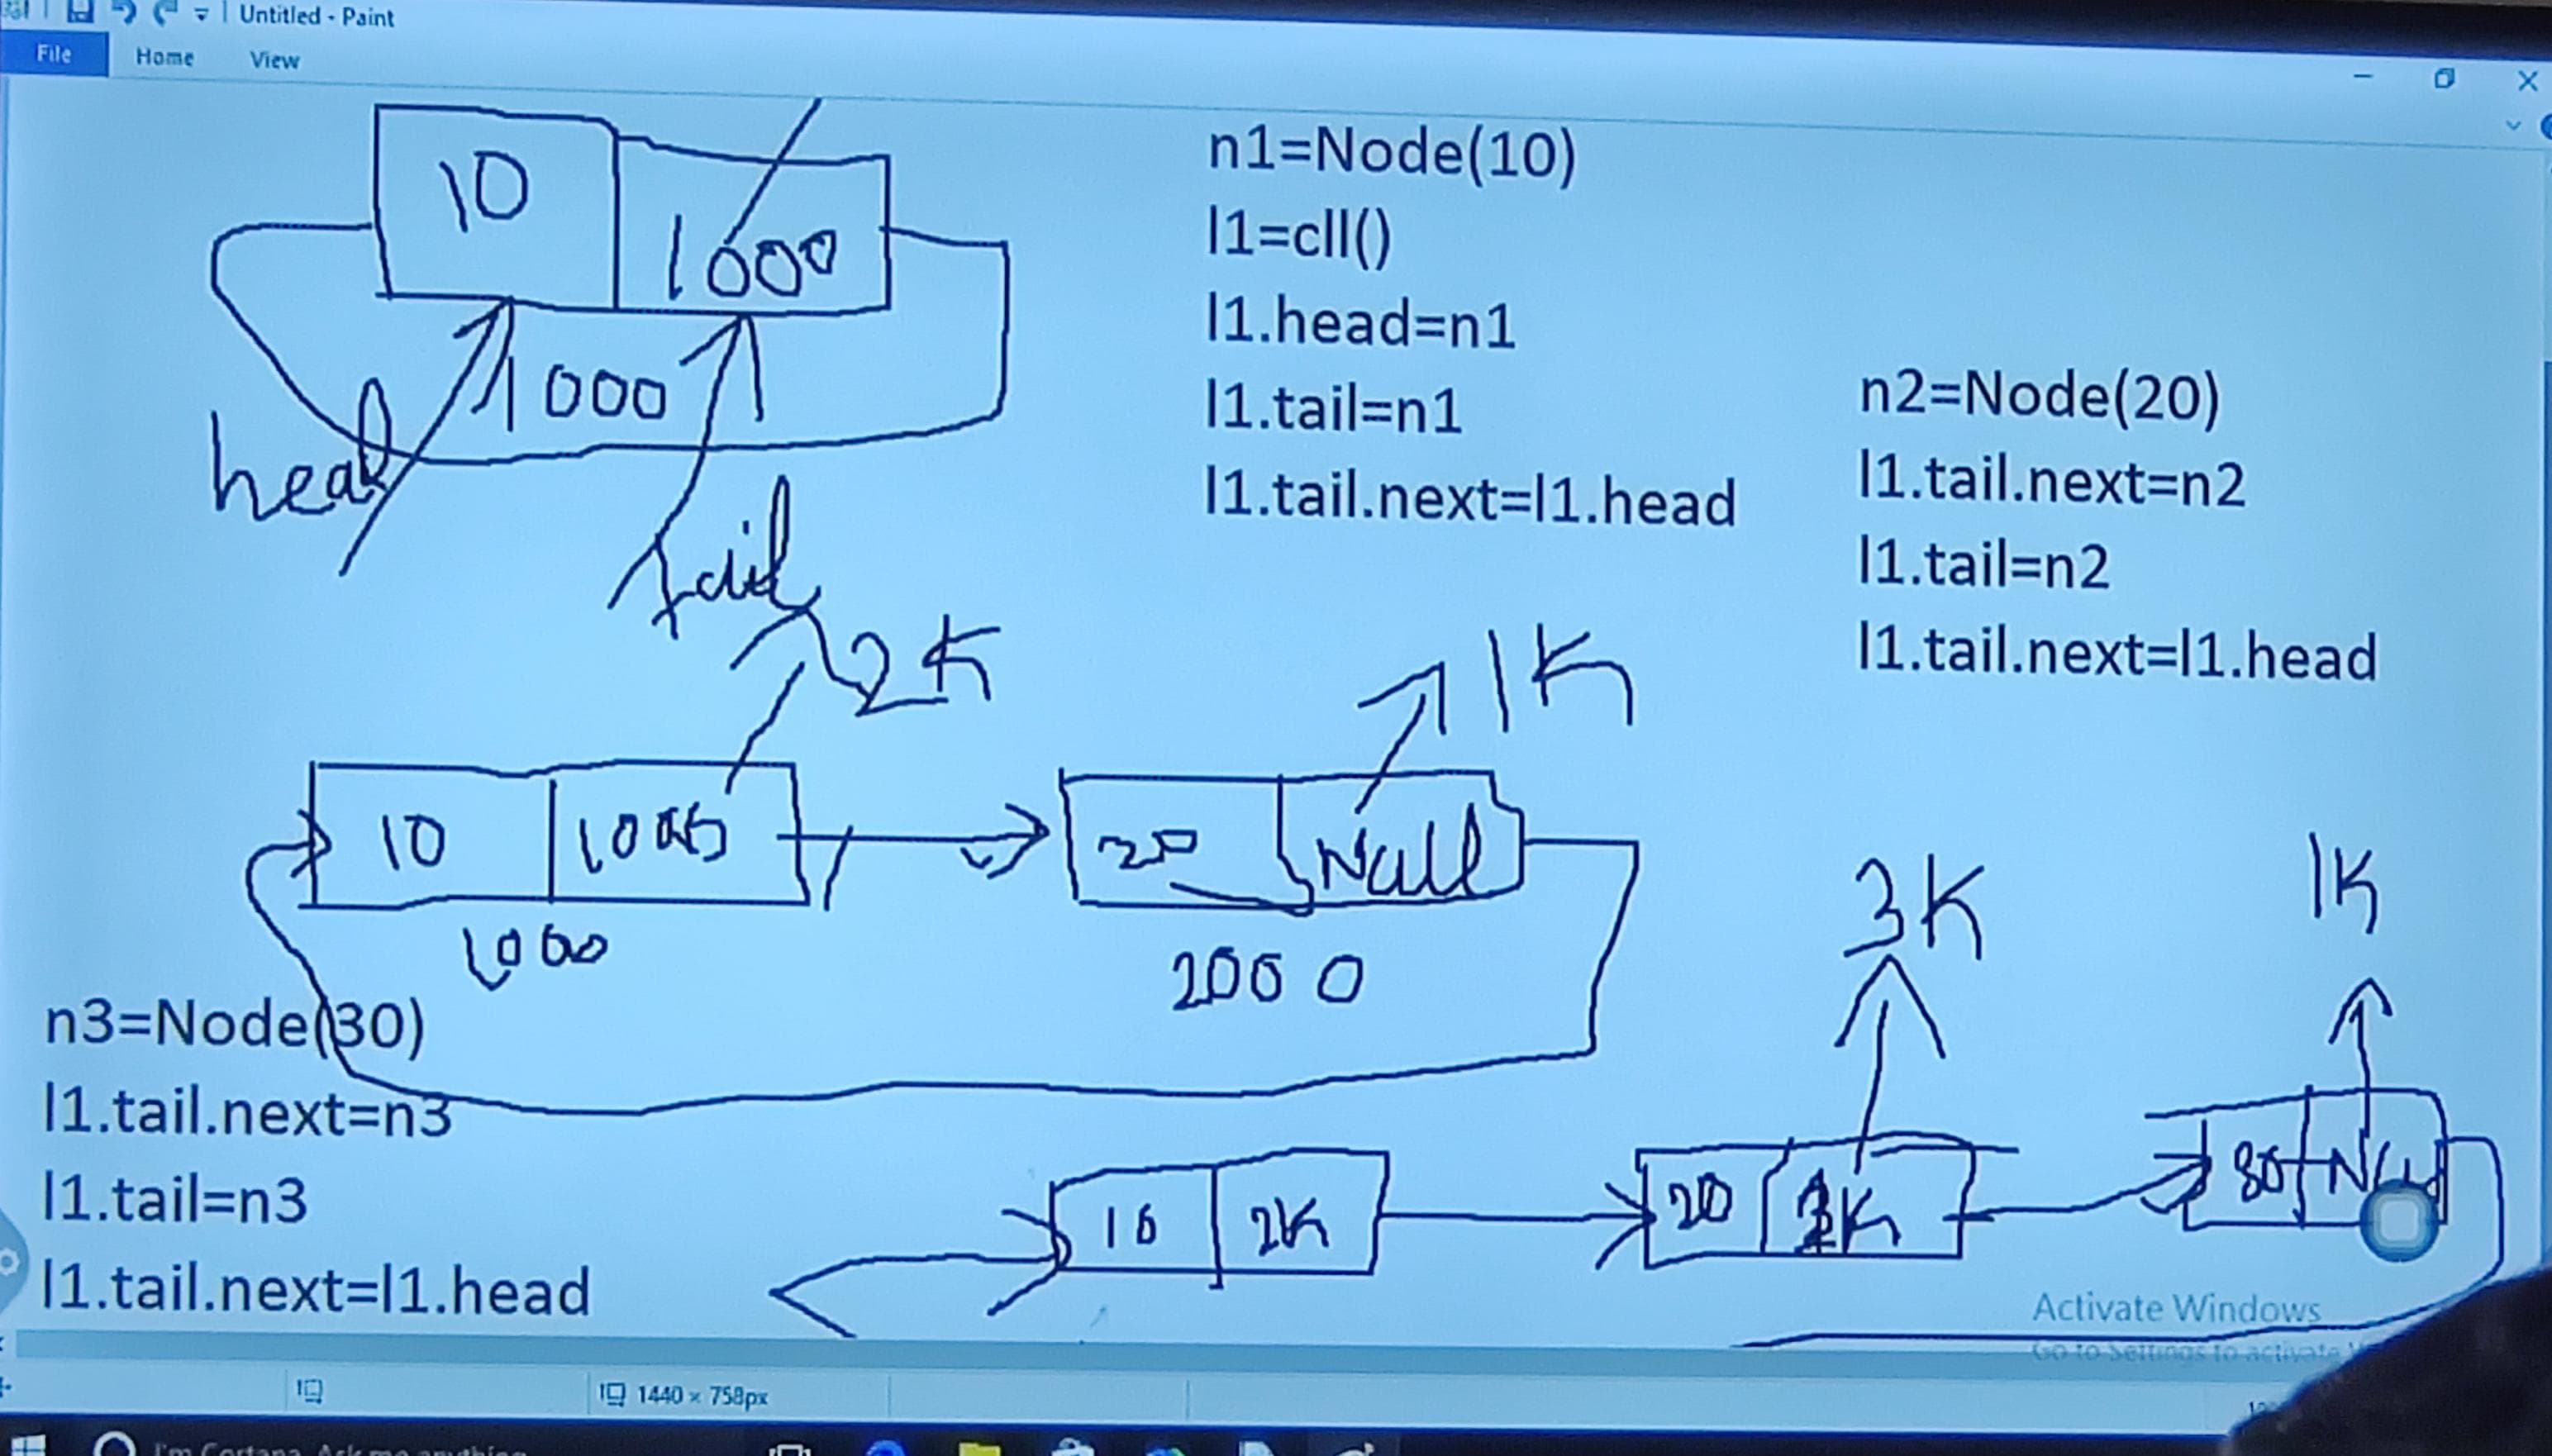 Untitled - Paint
File Home View
10 1000
1000
head
tail
n1=Node(10)
l1=cll()
l1.head=n1
l1.tail=n1
l1.tail.next=l1.head
n2=Node(20)
l1.tail.next=n2
l1.tail=n2
l1.tail.next=l1.head
2K
1K
10 1000
20 Null
1000
2000
n3=Node(30)
l1.tail.next=n3
l1.tail=n3
l1.tail.next=l1.head
3K
1K
10 2K
20
30
Activate Windows
Go to Settings to activate
1440 × 758px
I'm Cortana. Ask me anything.